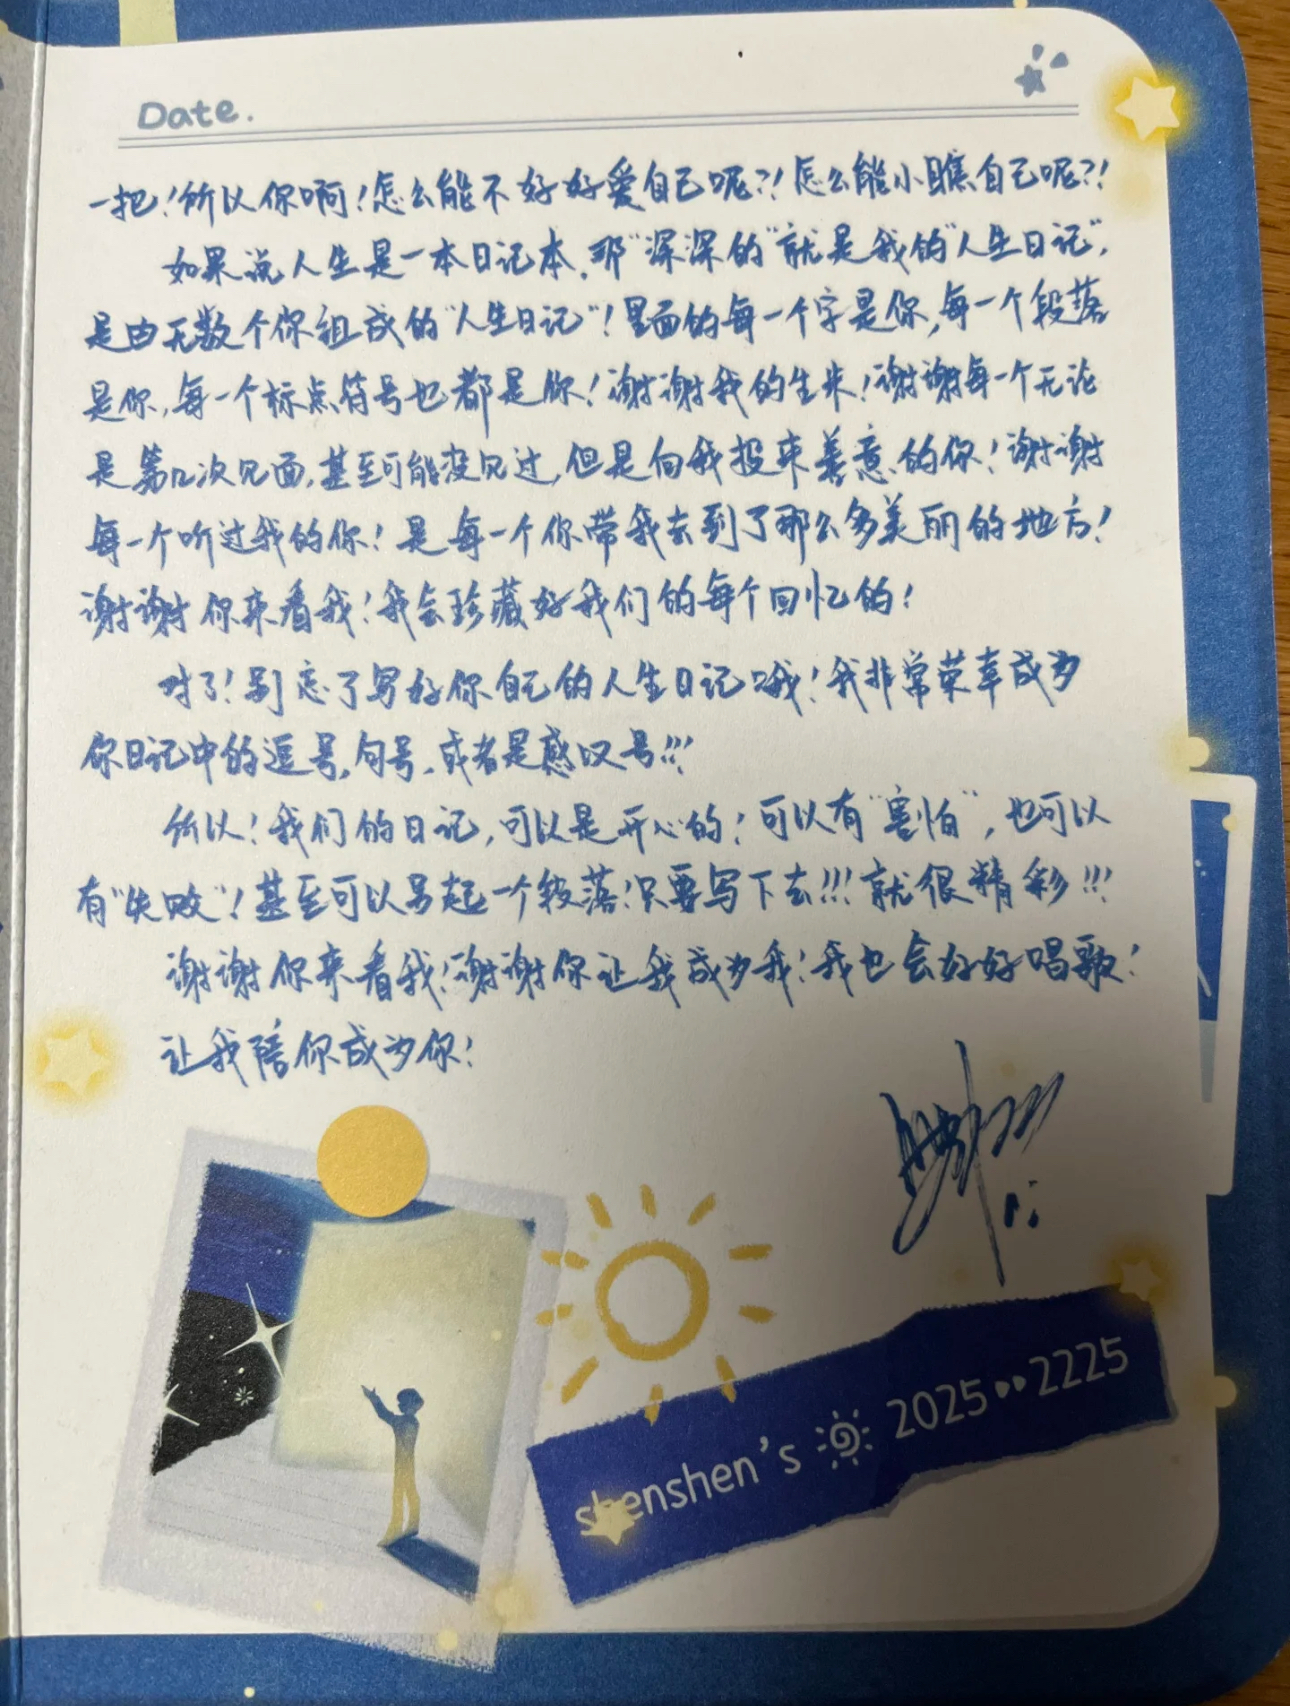 Date.
一把！所以你啊！怎么能不好好爱自己呢？！怎么能小瞧自己呢？！
如果说人生是一本日记本，那“深深的”就是我的“人生日记”，
是由无数个你组成的“人生日记”！里面的每一个字是你，每一个段落
是你，每一个标点符号也都是你！谢谢我的生米！谢谢每一个无论
是第几次见面，甚至可能没见过，但是向我投来善意的你！谢谢
每一个听过我的你！是每一个你带我去到了那么多美丽的地方！
谢谢你来看我！我会珍藏好我们的每个回忆的！
对了！别忘了写好你自己的人生日记哦！我非常荣幸成为
你日记中的逗号，句号，或者是感叹号!!!
所以！我们的日记，可以是开心的！可以有“害怕”，也可以
有“失败”！甚至可以另起一个段落！只要写下去!!!就很精彩!!!
谢谢你来看我！谢谢你让我成为我！我也会好好唱歌！
让我陪你成为你！
shenshen's 2025••2225